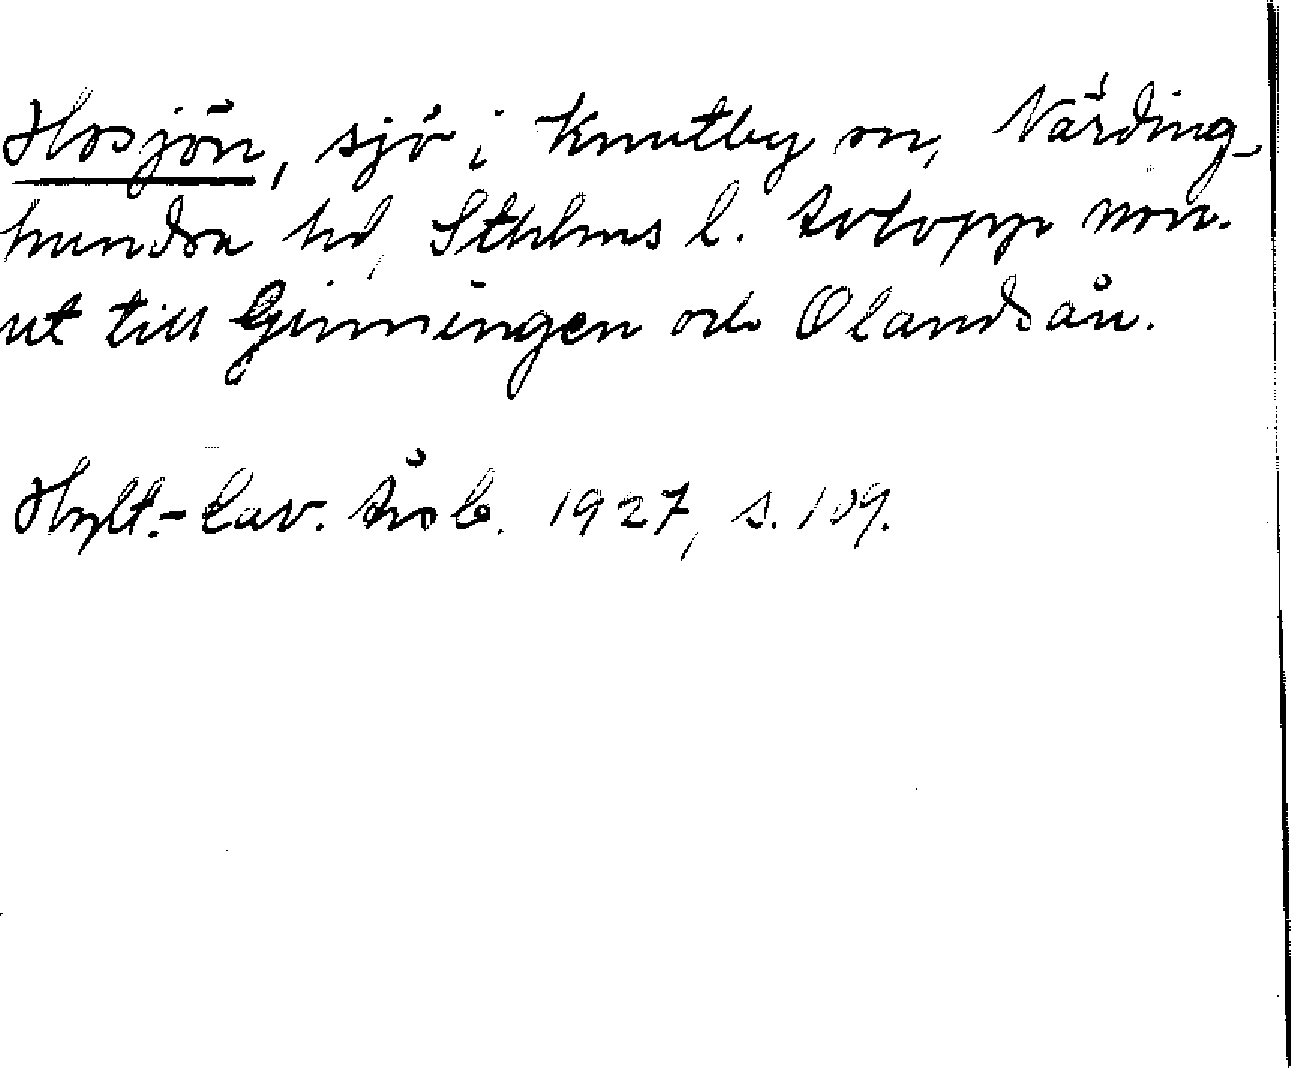 Hosjön, sjö i Knutby sn, Närding-
hundra hd, Sthlms l. Avlopp norr-
ut till Gimningen och Olandsån.
Hylt.-Cav. Årsb. 1927, s. 109.